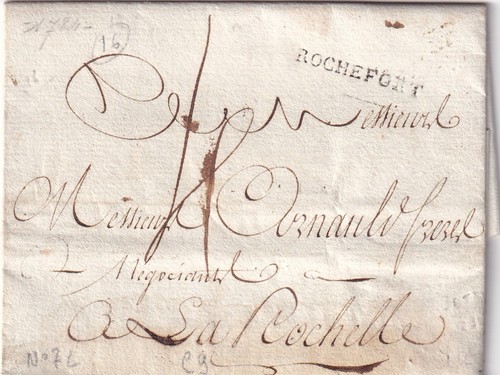 1784
(16)
16
ROCHEFORT
Messieurs
Messieurs Arnauld freres
Negociants
A La Rochelle
N° 72